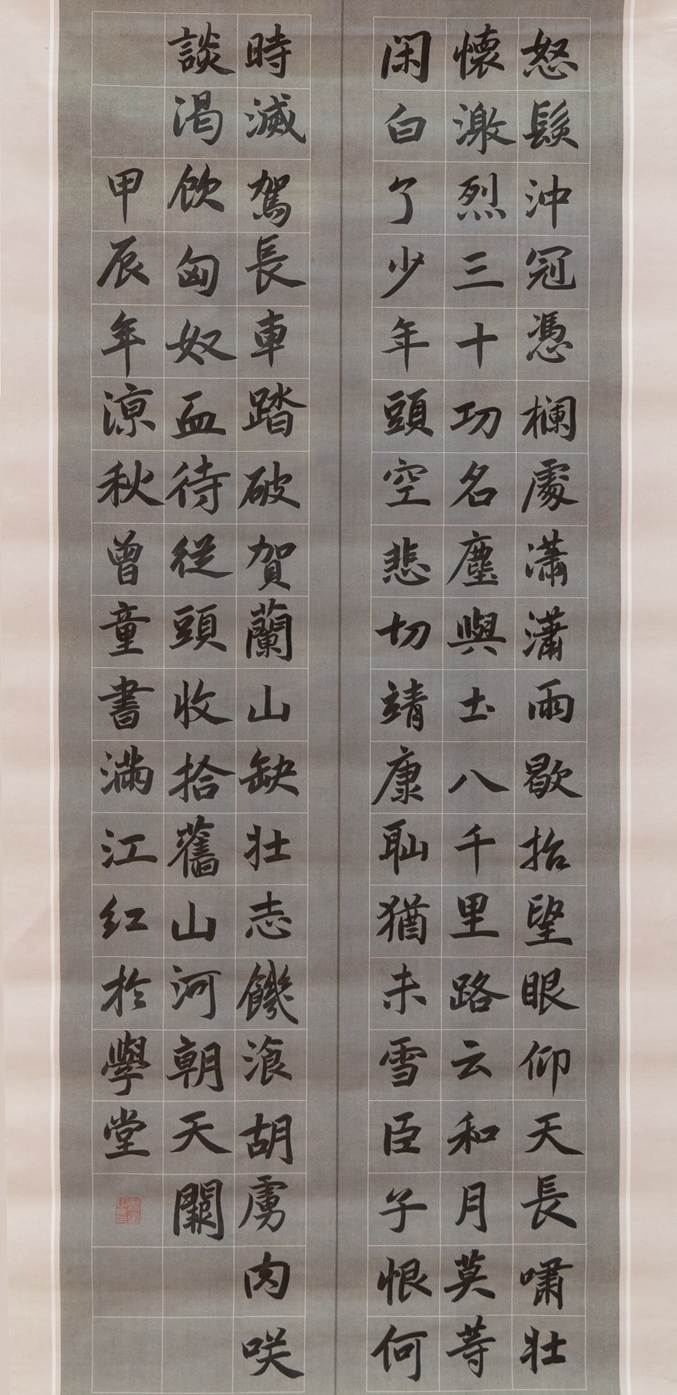 怒髮沖冠憑欄處瀟瀟雨歇抬望眼仰天長嘯壯
懷激烈三十功名塵與土八千里路云和月莫等
閑白了少年頭空悲切靖康恥猶未雪臣子恨何
時滅駕長車踏破賀蘭山缺壯志饑飡胡虜肉咲
談渴飲匈奴血待從頭收拾舊山河朝天闕
甲辰年涼秋曾童書滿江紅於學堂